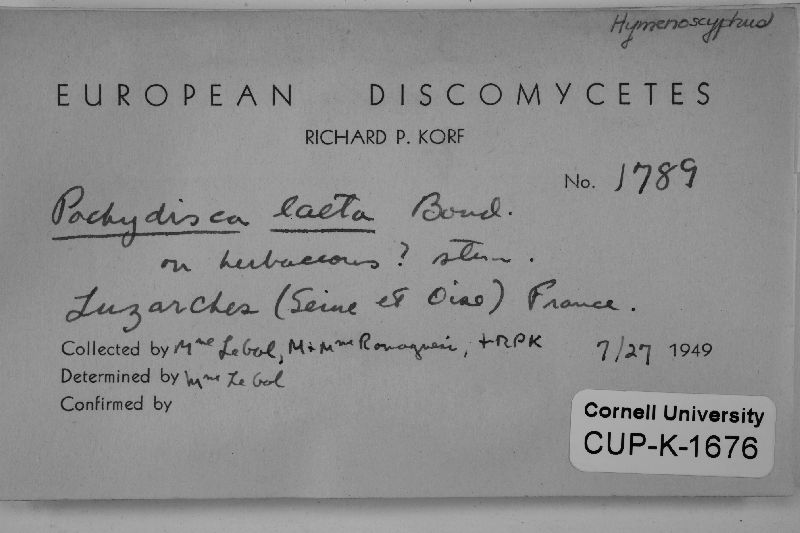 Hymenoscyphus
EUROPEAN DISCOMYCETES
RICHARD P. KORF
No. 1789
Pachydisca laeta Boud.
on herbaceous? stem.
Luzarches (Seine et Oise) France.
Collected by Mme LeGal, M+Mme Romagnesi, + RPK 7/27 1949
Determined by Mme Le Gal
Confirmed by
Cornell University
CUP-K-1676